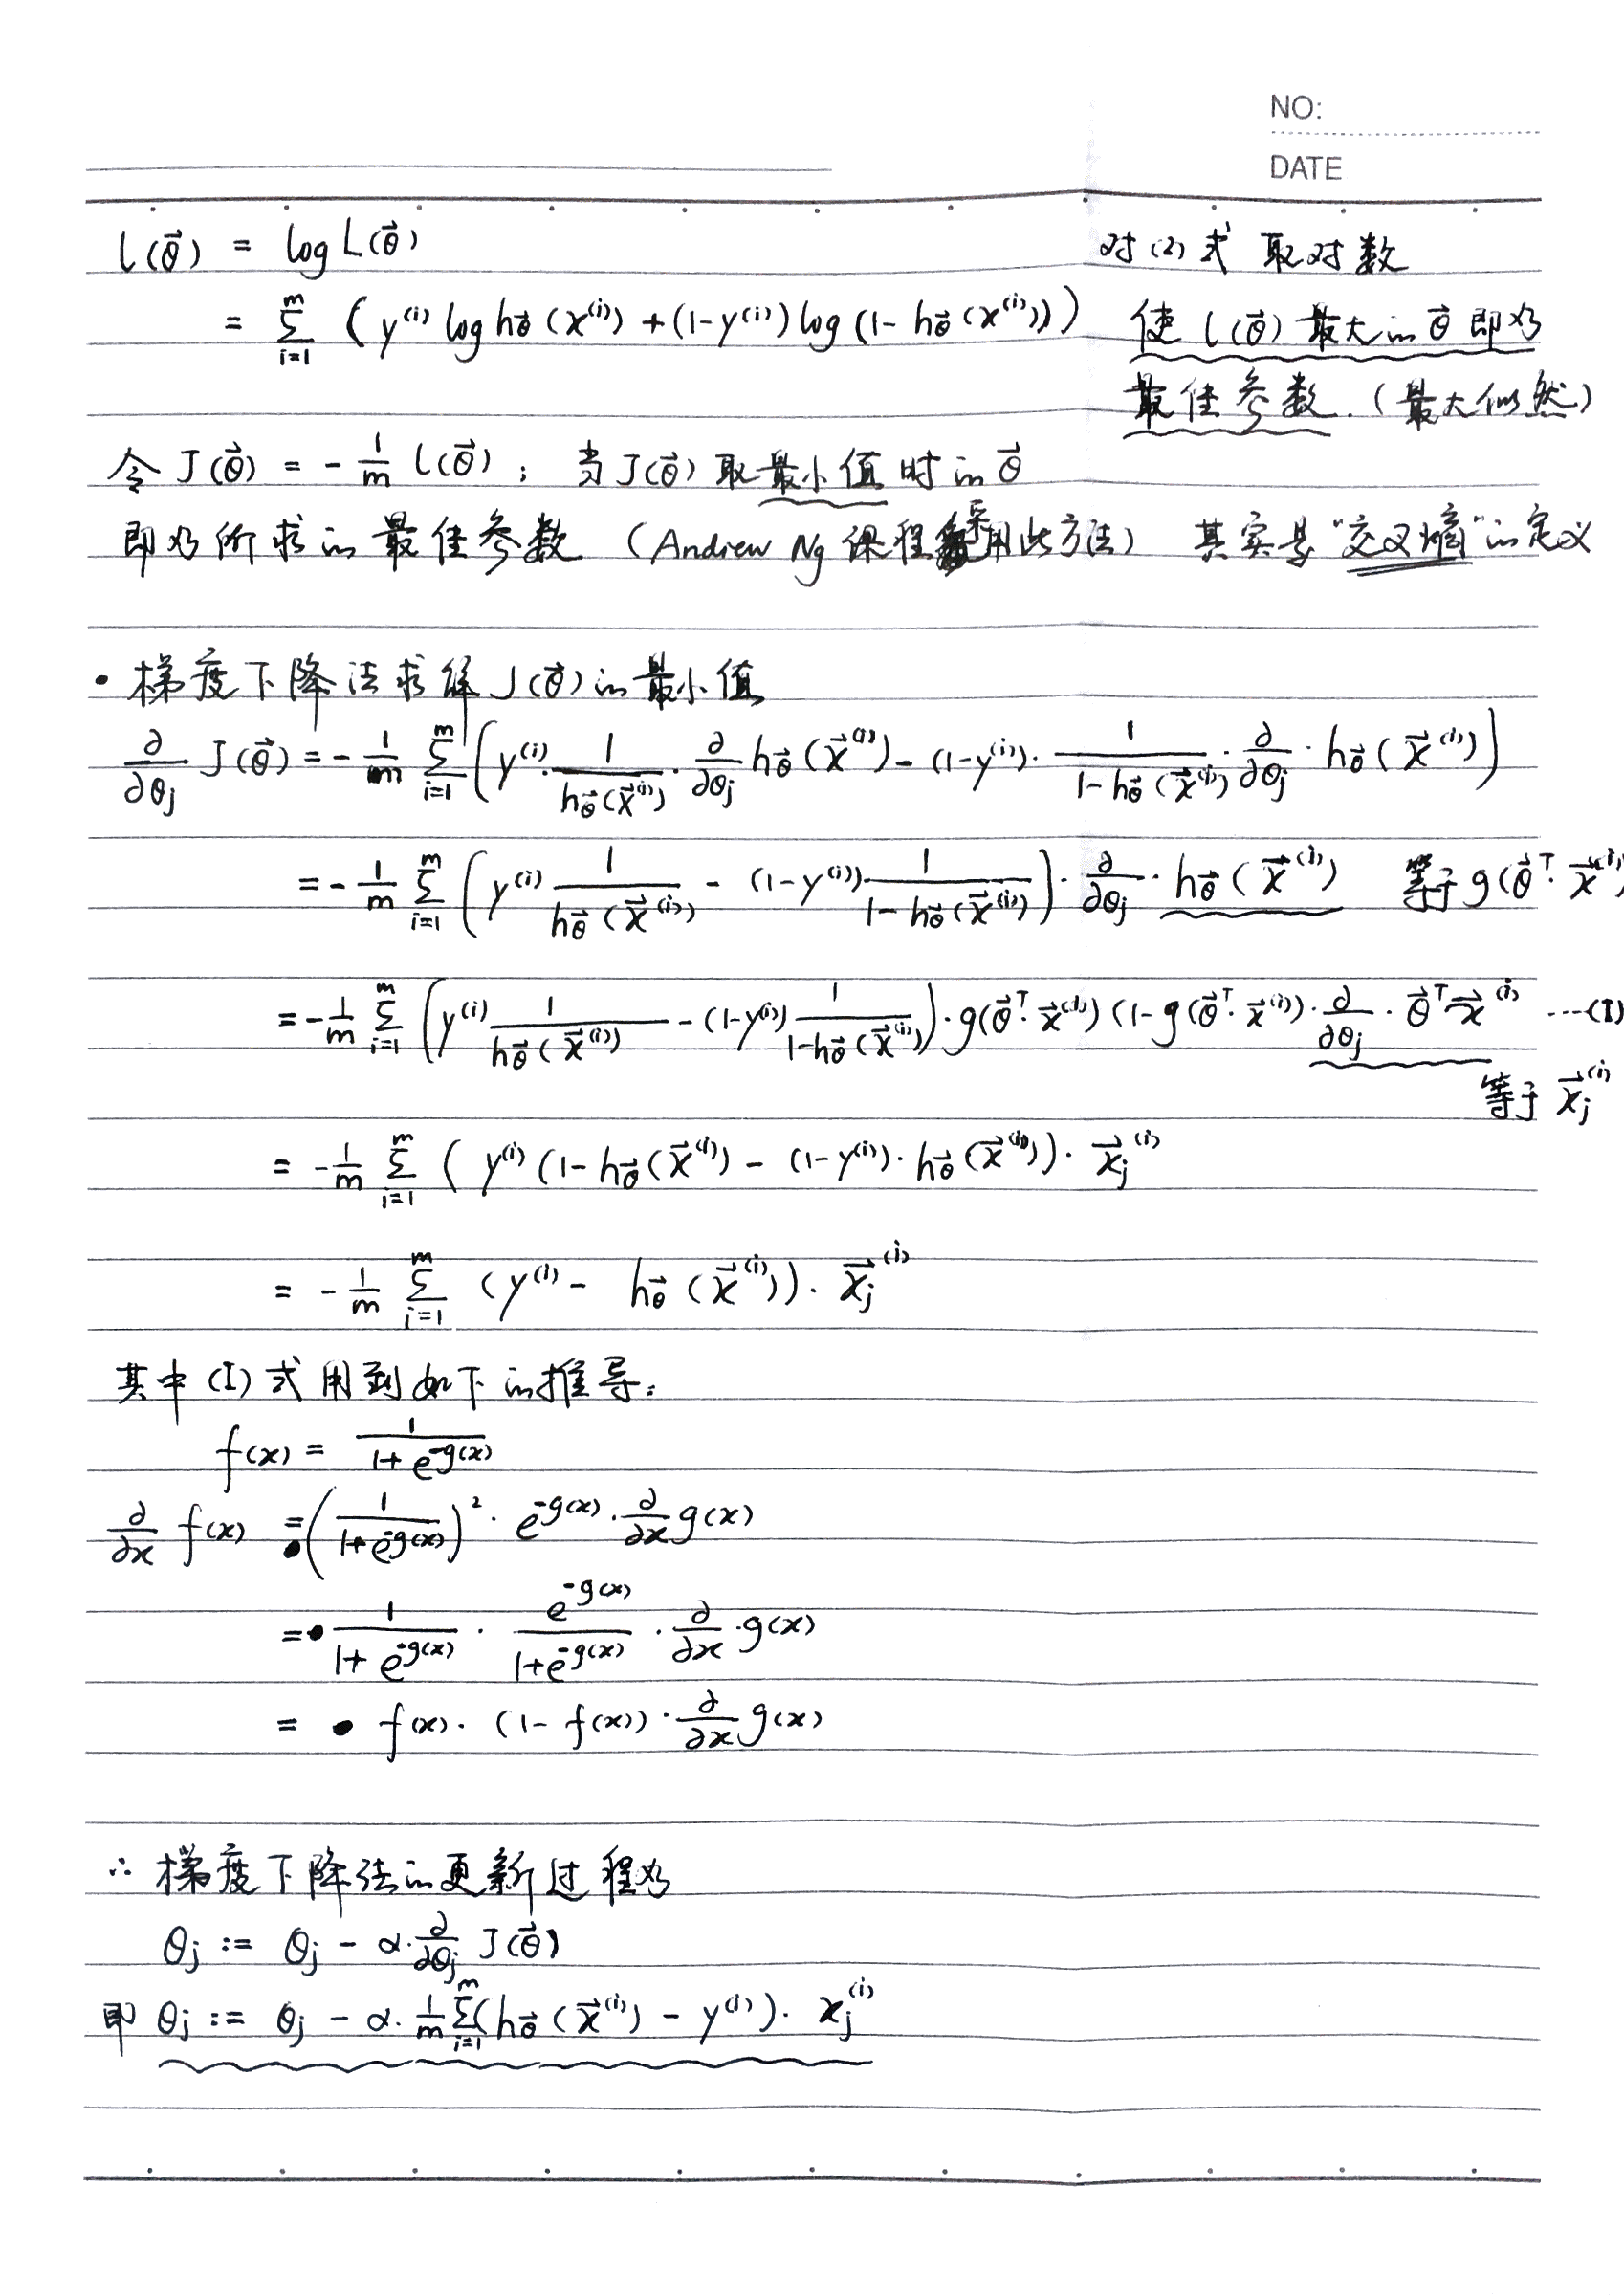 NO:
DATE
l(θ⃗) = log L(θ⃗) 对(2)式 取对数
= Σ_{i=1}^{m} (y⁽ⁱ⁾ log h_θ⃗(x⁽ⁱ⁾) + (1-y⁽ⁱ⁾) log (1-h_θ⃗(x⁽ⁱ⁾))) 使 l(θ⃗) 最大的 θ⃗ 即为
最佳参数.(最大似然)
令 J(θ⃗) = - 1/m l(θ⃗); 当 J(θ⃗) 取最小值时的 θ⃗
即为所求的最佳参数 (Andrew Ng 课程采用此方法) 其实是"交叉熵"的定义
• 梯度下降法求解 J(θ⃗) 的最小值
∂/∂θ_j J(θ⃗) = - 1/m Σ_{i=1}^{m} (y⁽ⁱ⁾ · 1/h_θ⃗(x⃗⁽ⁱ⁾) · ∂/∂θ_j h_θ⃗(x⃗⁽ⁱ⁾) - (1-y⁽ⁱ⁾) · 1/(1-h_θ⃗(x⃗⁽ⁱ⁾)) · ∂/∂θ_j · h_θ⃗(x⃗⁽ⁱ⁾))
= - 1/m Σ_{i=1}^{m} (y⁽ⁱ⁾ 1/h_θ⃗(x⃗⁽ⁱ⁾) - (1-y⁽ⁱ⁾) 1/(1-h_θ⃗(x⃗⁽ⁱ⁾))) · ∂/∂θ_j · h_θ⃗(x⃗⁽ⁱ⁾) 等于 g(θ⃗ᵀ · x⃗⁽ⁱ⁾)
= - 1/m Σ_{i=1}^{m} (y⁽ⁱ⁾ 1/h_θ⃗(x⃗⁽ⁱ⁾) - (1-y⁽ⁱ⁾) 1/(1-h_θ⃗(x⃗⁽ⁱ⁾))) · g(θ⃗ᵀ · x⃗⁽ⁱ⁾) (1-g(θ⃗ᵀ · x⃗⁽ⁱ⁾) · ∂/∂θ_j · θ⃗ᵀ x⃗⁽ⁱ⁾ ···(I)
等于 x⃗_j⁽ⁱ⁾
= - 1/m Σ_{i=1}^{m} (y⁽ⁱ⁾ (1-h_θ⃗(x⃗⁽ⁱ⁾) - (1-y⁽ⁱ⁾) · h_θ⃗(x⃗⁽ⁱ⁾)) · x⃗_j⁽ⁱ⁾
= - 1/m Σ_{i=1}^{m} (y⁽ⁱ⁾ - h_θ⃗(x⃗⁽ⁱ⁾)) · x⃗_j⁽ⁱ⁾
其中 (I) 式用到如下的推导:
f(x) = 1/(1+e^{-g(x)})
∂/∂x f(x) = (1/(1+e^{-g(x)}))² · e^{-g(x)} · ∂/∂x g(x)
= 1/(1+e^{-g(x)}) · e^{-g(x)}/(1+e^{-g(x)}) · ∂/∂x · g(x)
= f(x) · (1-f(x)) · ∂/∂x g(x)
∴ 梯度下降法的更新过程为
θ_j := θ_j - α · ∂/∂θ_j J(θ⃗)
即 θ_j := θ_j - α · 1/m Σ_{i=1}^{m} (h_θ⃗(x⃗⁽ⁱ⁾) - y⁽ⁱ⁾) · x_j⁽ⁱ⁾